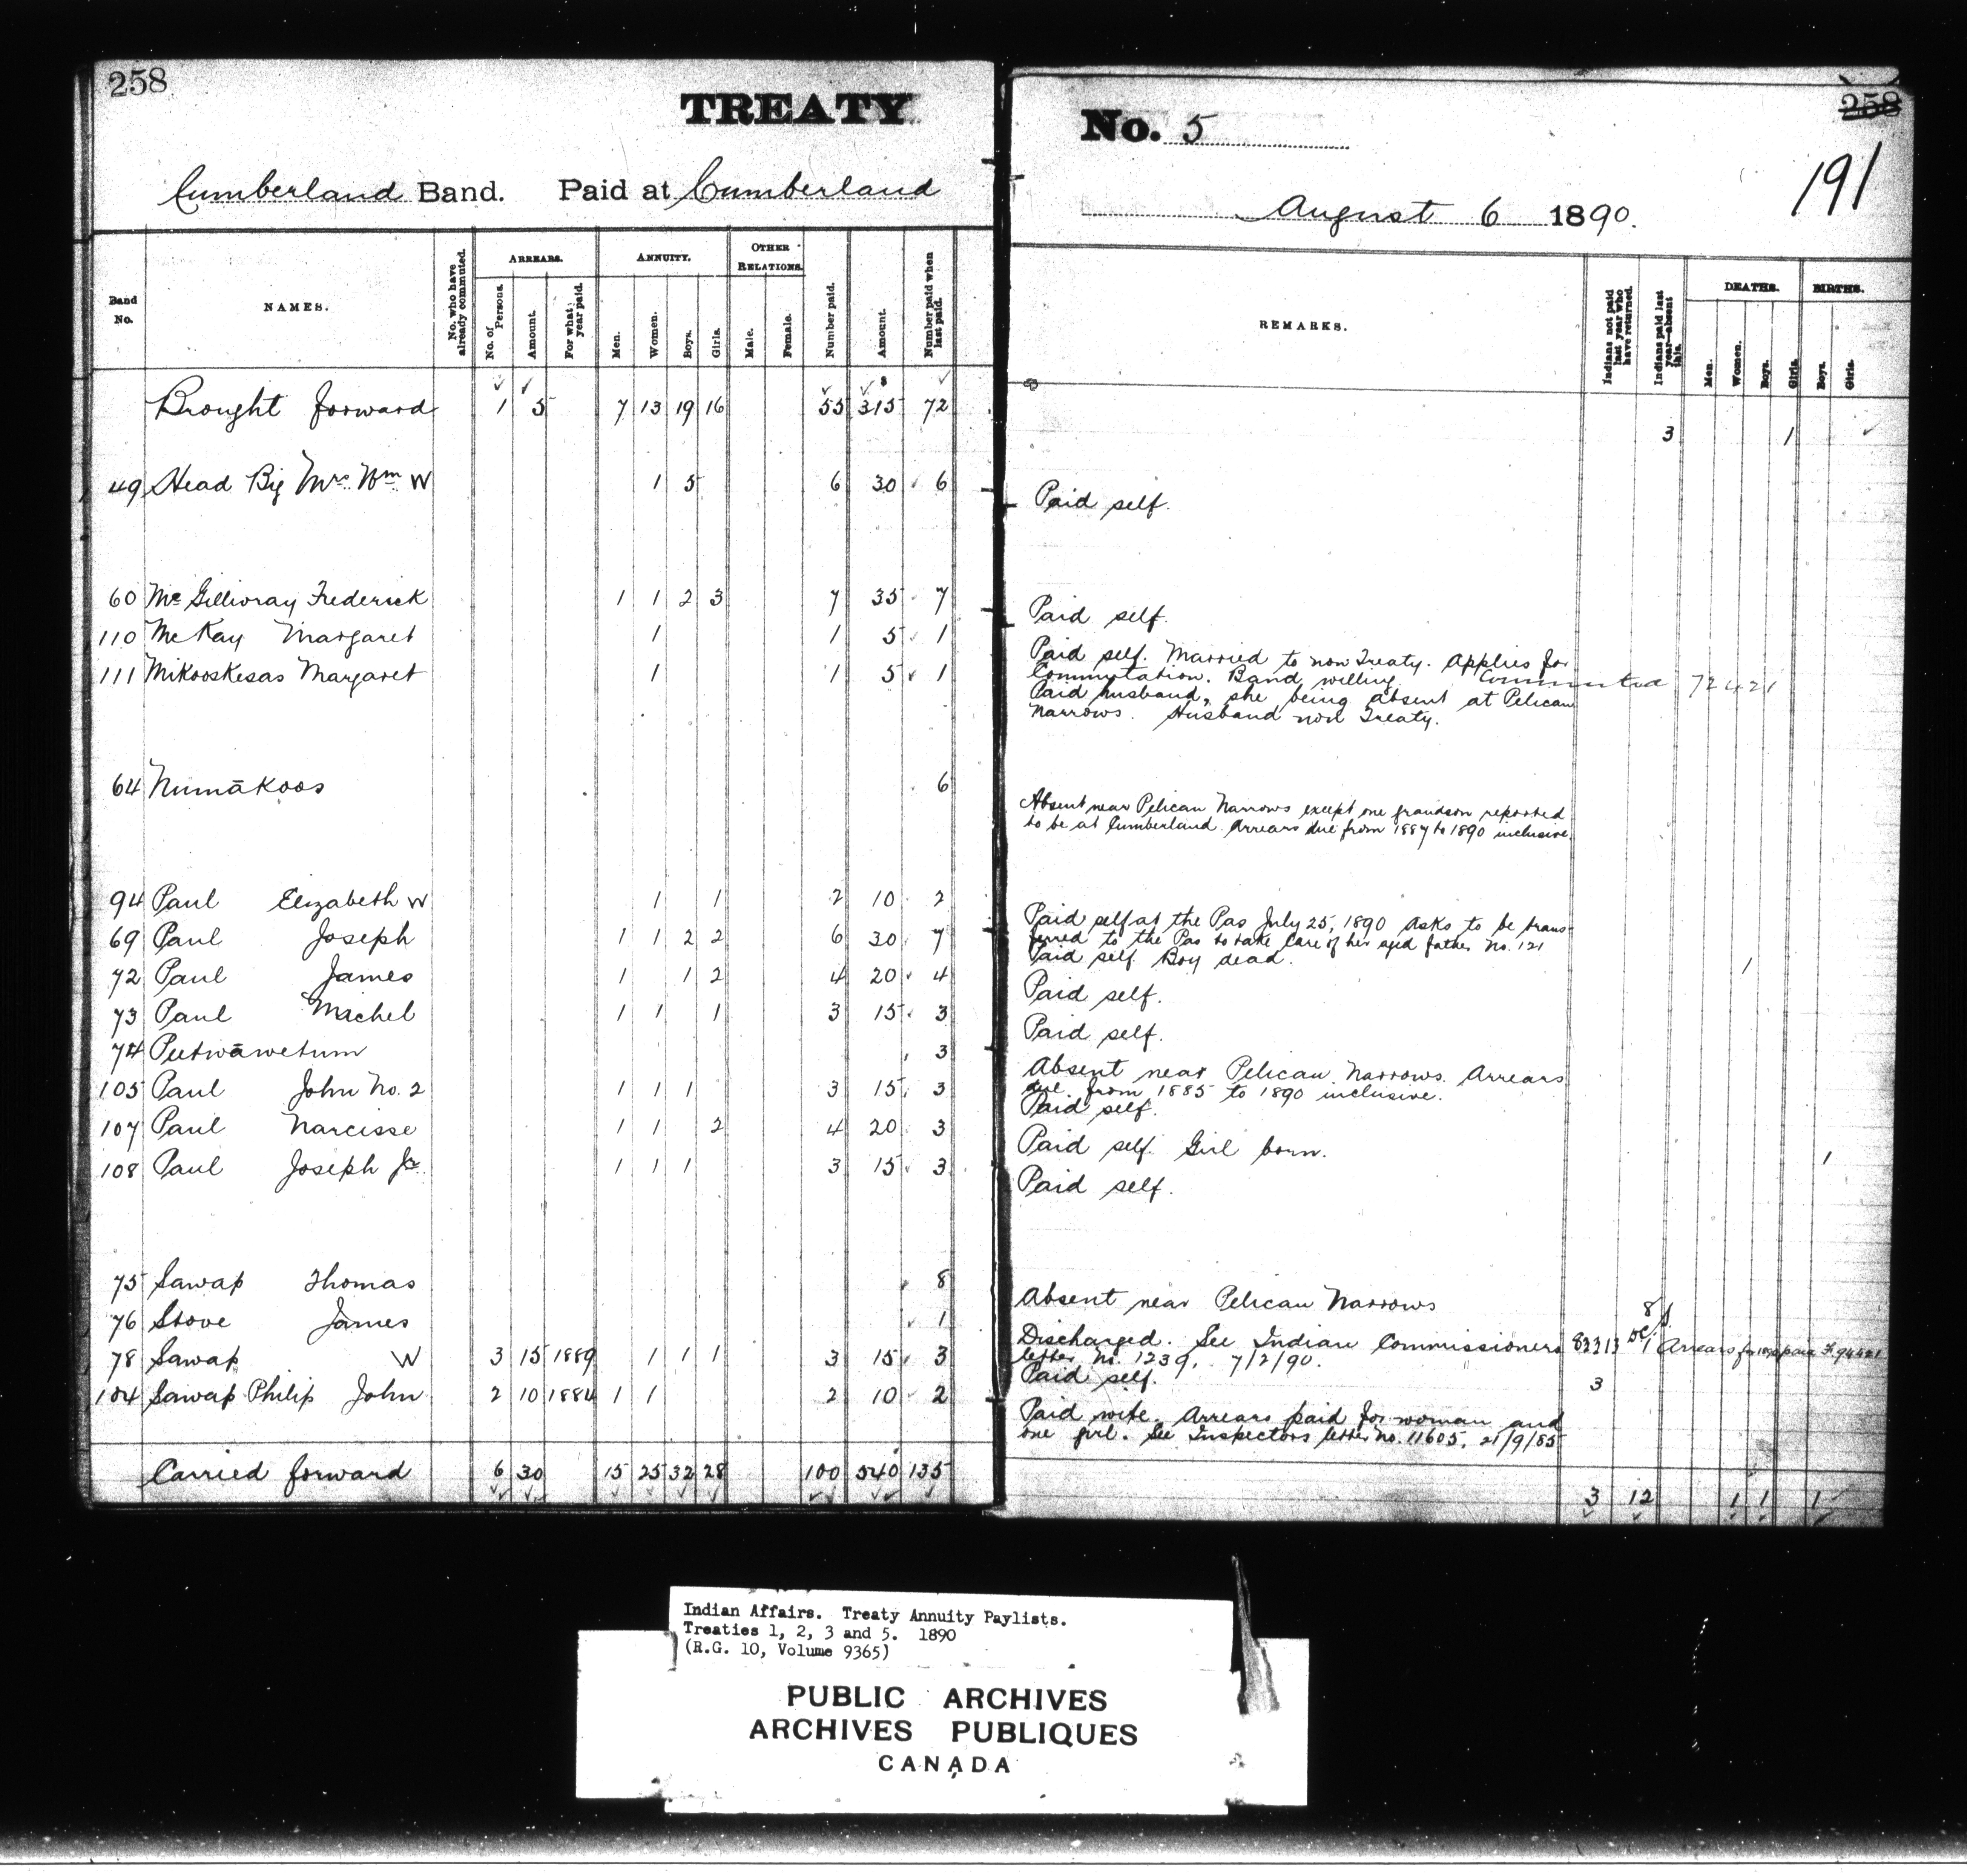 258
TREATY
No. 5
258
191
Cumberland Band. Paid at Cumberland
August 6 1890.
Band No.
NAMES.
No. who have already commuted.
ARREARS.
No. of Persons.
Amount.
For what year paid.
ANNUITY.
Men.
Women.
Boys.
Girls.
OTHER RELATIONS.
Male.
Female.
Number paid.
Amount.
Number paid when last paid.
REMARKS.
Indians not paid last year who have returned.
Indians paid last year—absent this.
DEATHS.
Men.
Women.
Boys.
Girls.
BIRTHS.
Boys.
Girls.
Brought forward 1 5 7 13 19 16 55 315 72 3 1
49 Head Big Mrs. Wm. W 1 5 6 30 6 Paid self.
60 McGillivray Frederick 1 1 2 3 7 35 7 Paid self.
110 McKay Margaret 1 1 5 1 Paid self. Married to non Treaty. Applies for
Commutation. Band willing. Commuted 72421
111 Mikooskesas Margaret 1 1 5 1 Paid husband, she being absent at Pelican
Narrows. Husband non Treaty.
64 Numākoos 6 Absent near Pelican Narrows except one grandson reported
to be at Cumberland. Arrears due from 1887 to 1890 inclusive.
94 Paul Elizabeth W 1 1 2 10 2 Paid self at the Pas July 25, 1890 Asks to be trans-
ferred to the Pas to take care of her aged father No. 121
69 Paul Joseph 1 1 2 2 6 30 7 Paid self Boy dead. 1
72 Paul James 1 1 2 4 20 4 Paid self.
73 Paul Michel 1 1 1 3 15 3 Paid self.
74 Peetwāwetum 3 Absent near Pelican Narrows. Arrears
due from 1885 to 1890 inclusive.
105 Paul John No. 2 1 1 1 3 15 3 Paid self.
107 Paul Narcisse 1 1 2 4 20 3 Paid self. Girl born. 1
108 Paul Joseph Jr. 1 1 1 3 15 3 Paid self.
75 Sawap Thomas 8 Absent near Pelican Narrows 8
76 Stove James 1 Discharged. See Indian Commissioners 82313 1 Arrears for paid
letter no. 1239, 7/2/90.
78 Sawap W 3 15 1889 1 1 1 3 15 3 Paid self. 3
104 Sawap Philip John 2 10 1884 1 1 2 10 2 Paid wife. Arrears paid for woman and
one girl. See Inspectors letter no. 11605, 21/9/85
Carried forward 6 30 15 25 32 28 100 540 135 3 12 1 1 1
Indian Affairs. Treaty Annuity Paylists.
Treaties 1, 2, 3 and 5. 1890
(R.G. 10, Volume 9365)
PUBLIC ARCHIVES
ARCHIVES PUBLIQUES
CANADA